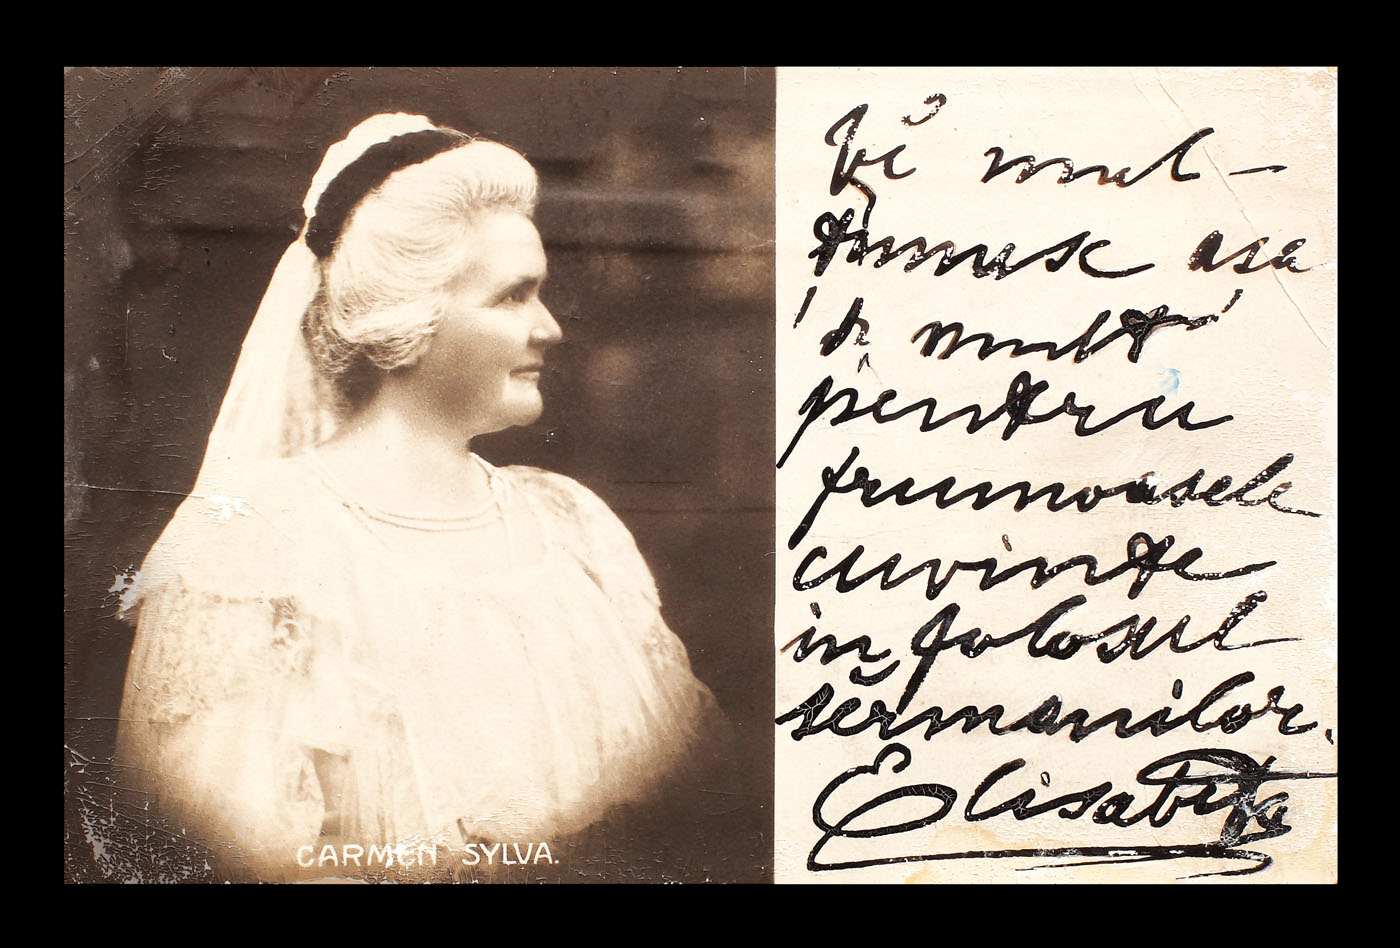 CARMEN SYLVA.
Vĕ mul-
țumesc asa
de mult
pentru
frumoasele
cuvinte
in folosul
sĕrmanilor.
Elisabeta